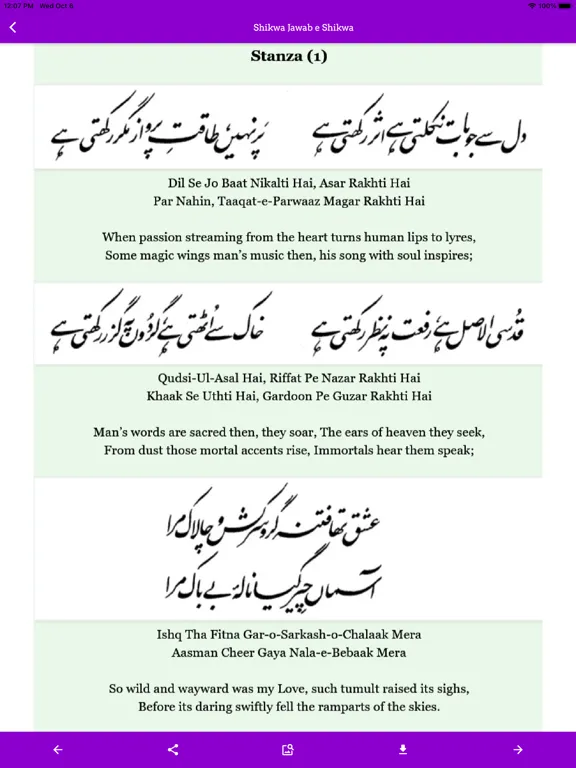 12:07 PM Wed Oct 6
100%
Shikwa Jawab e Shikwa
Stanza (1)
دل سے جو بات نکلتی ہے اثر رکھتی ہے
پَر نہیں، طاقتِ پرواز مگر رکھتی ہے
Dil Se Jo Baat Nikalti Hai, Asar Rakhti Hai
Par Nahin, Taaqat-e-Parwaaz Magar Rakhti Hai
When passion streaming from the heart turns human lips to lyres,
Some magic wings man’s music then, his song with soul inspires;
قُدسی الاصل ہے، رفعت پہ نظر رکھتی ہے
خاک سے اُٹھتی ہے گردُوں پہ گزر رکھتی ہے
Qudsi-Ul-Asal Hai, Riffat Pe Nazar Rakhti Hai
Khaak Se Uthti Hai, Gardoon Pe Guzar Rakhti Hai
Man’s words are sacred then, they soar, The ears of heaven they seek,
From dust those mortal accents rise, Immortals hear them speak;
عشق تھا فتنہ گر و سرکش و چالاک مرا
آسماں چیر گیا نالۂ بے باک مرا
Ishq Tha Fitna Gar-o-Sarkash-o-Chalaak Mera
Aasman Cheer Gaya Nala-e-Bebaak Mera
So wild and wayward was my Love, such tumult raised its sighs,
Before its daring swiftly fell the ramparts of the skies.